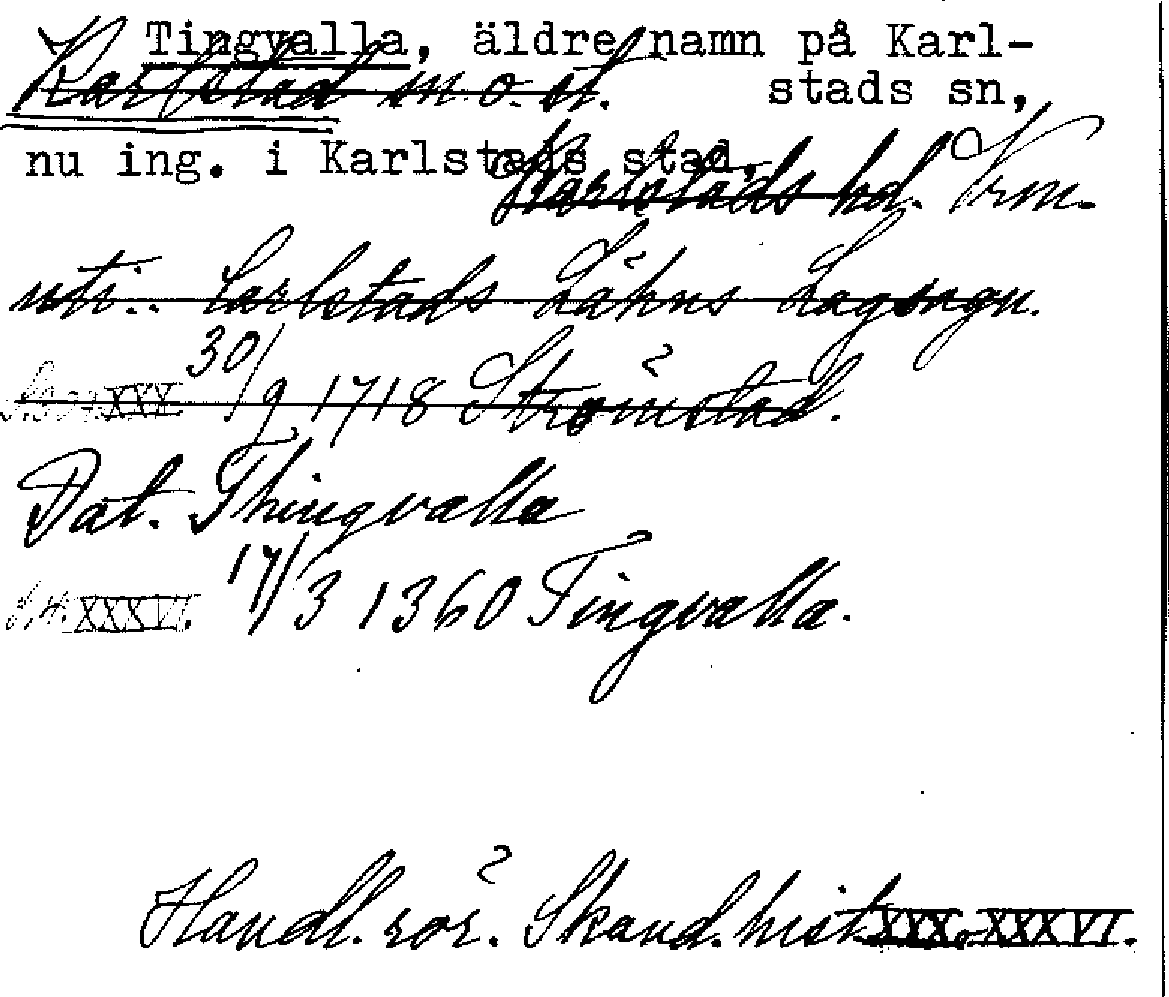 Tingvalla, äldre namn på Karl-
Karlstad m.o.st. stads sn,
nu ing. i Karlstads stad.
Karlstads hd. Vrm.
uti.. Carlstads Lähns Lagsagn.
XXX 30/9 1718 Strömstad.
Dat. Thingvalla
XXXVI. 17/3 1360 Tingvalla.
Handl. rör. Skand. hist. XXX o XXXVI.